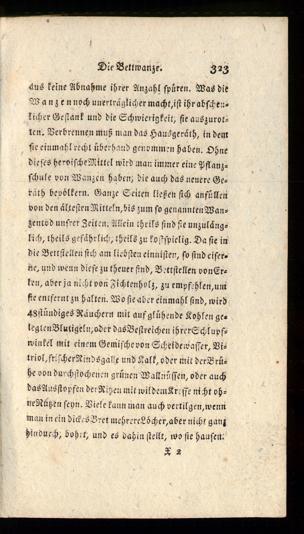 Die Bettwanze. 323
aus keine Abnahme ihrer Anzahl spüren. Was die
Wanzen noch unerträglicher macht, ist ihr abscheu-
licher Gestank und die Schwierigkeit, sie auszurot-
ten. Verbrennen muß man das Hausgeräth, in dem
sie einmahl recht überhand genommen haben. Ohne
dieses heroische Mittel wird man immer eine Pflanz-
schule von Wanzen haben, die auch das neuere Ge-
räth bevölkern. Ganze Seiten ließen sich anfüllen
von den ältesten Mitteln, bis zum so genannten Wan-
zentod unsrer Zeiten. Allein theils sind sie unzuläng-
lich, theils gefährlich, theils zu kostspielig. Da sie in
die Bettstellen sich am liebsten einnisten, so sind eiser-
ne, und wenn diese zu theuer sind, Bettstellen von Er-
len, aber ja nicht von Fichtenholz, zu empfehlen, um
sie entfernt zu halten. Wo sie aber einmahl sind, wird
48stündiges Räuchern mit auf glühende Kohlen ge-
legten Blutigeln, oder das Bestreichen ihrer Schlupf-
winkel mit einem Gemische von Scheidewasser, Vi-
triol, frischer Rindsgalle und Kalk, oder mit der Brü-
he von durchstochenen grünen Wallnüssen, oder auch
das Ausstopfen der Ritzen mit wildem Kresse nicht oh-
ne Nutzen seyn. Viele kann man auch vertilgen, wenn
man in ein dickes Bret mehrere Löcher, aber nicht ganz
hindurch, bohrt, und es dahin stellt, wo sie hausen.
X 2